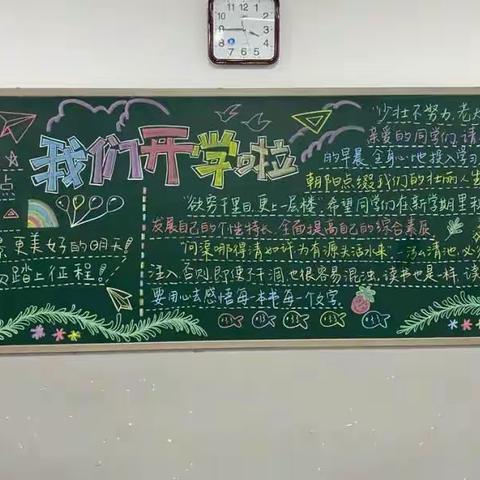 我们开学啦
点
更美好的明天!
踏上征程!
少壮不努力,老
亲爱的同学们,请
的早晨,全身心地投入学习
朝阳点缀我们的壮丽人生
欲穷千里目,更上一层楼,希望同学们在新学期里
发展自己的个性特长,全面提高自己的综合素质
问渠哪得清如许,为有源头活水来,一池清池,必
注入,否则,即便不干涸,也很容易混浊,读书也是一样,读
要用心去感悟每一本书每一个文字。